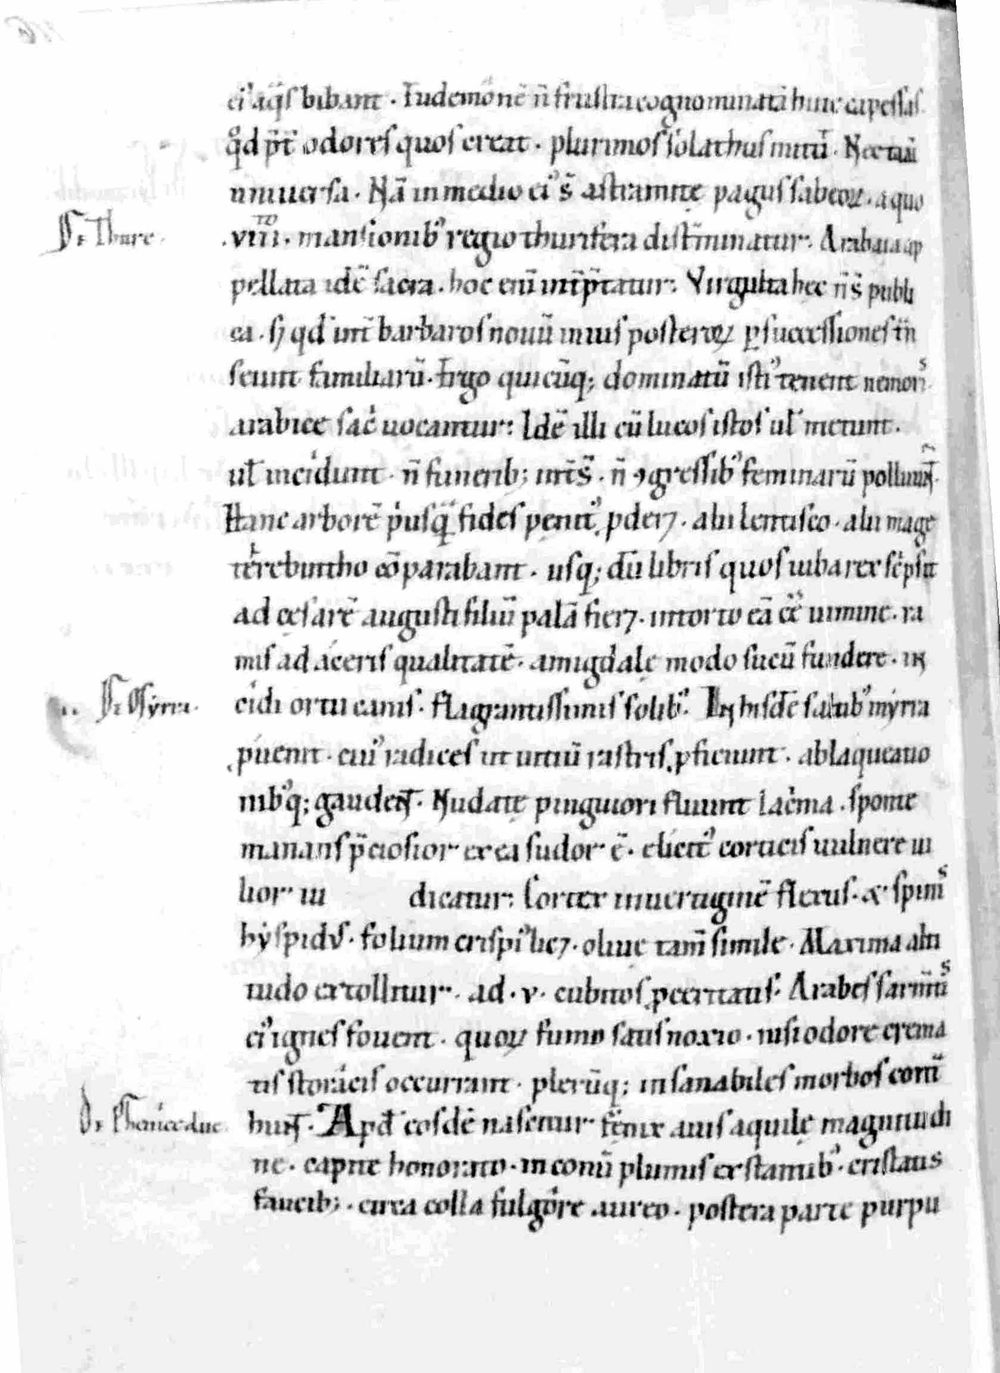 ei' aq̃s bibant . Eudemonē n̄ frustra cognominatā hinc capessas
qđ p̄t odores quos creat . plurimos solathus mittit . Nec tam̄
uniuersa . Nā in medio ei' s̄ astramite pagus sabeoꝝ . a quo
De Thure .
.viii. mansionib' regio thurifera disterminatur . Arabaia ap
pellata idē sacra . hoc enī int̄p̄tatur . Virgulta hec n̄ s̄ publi
ca . sȝ qđ int̄ barbaros nouū in ius posteroꝝ ꝑ successiones t̄n
seunt familiarū . Ergo quicūq; dominatū isti' tenent nemoris
arabice sac̄ uocantur : Idē illi cū lucos istos uł metunt .
uł incidunt . n̄ funerib; int̄s̄ . n̄ ꝯgressib' feminarū polluunt̄ .
Hanc arborē p'usq̄ fides penit' ꝓder⁊ . alii lentisco . alii mage
terebintho cōparabant . usq; dū libris quos iuba rex scͥpsit
ad cęsarē augusti filiū palā fier⁊ . intorto eā eē uimine . ra
mis ad aceris qualitatē . amigdalę modo sucū fundere . in
De Myrra .
cidi ortu canis . flagrantissimis solib' . In hisdē saltib' myrra
ꝓuenit . cui' radices ut uitiū rastris ꝓficiunt . ablaqueatio
nib'q; gaudent . Nudatę pinguiori fluunt lac̄ma . sponte
manans p̄ciosior ex ea sudor ē . elicit' corticis uulnere ui
lior iu dicatur : Cortex in uertiginē flexus . & spinis
hyspidus . folium crispi' lic⁊ . oliuę tam̄ simile . Maxima alti
tudo extollitur . ad . v . cubitos ꝓceritatis . Arabes sarmtis
ei' ignes fouent . quoꝝ fumo satis noxio . nisi odore crema
tis storacis occurrant . plerūq; insanabiles morbos cont̄
De Phenice aue .
hunt . Apđ eosdē nascitur fenix auis aquilę magnitudi
ne . capite honorato . in conū plumis extantib' . cristatis
faucib; . circa colla fulgore aureo . postera parte purpu